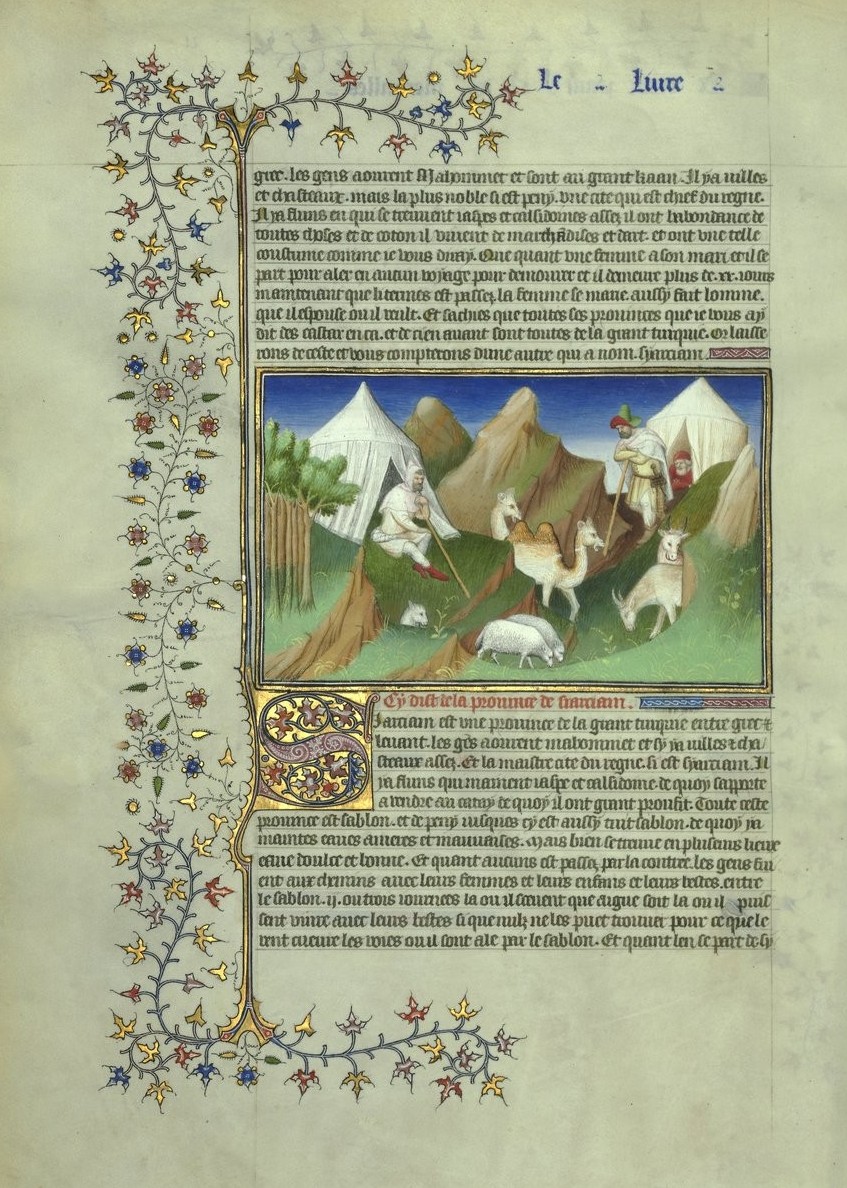 Le Liure
grec. les gens aourent Mahommet et sont au grant kaan. Il ya uilles
et chasteaux. mais la plus noble si est peny. vne cite qui est chief du regne.
Il ya fluns en qui se treuuent iaspes et calsidoines assez il ont labondance de
toutes choses et de coton il viuent de marchādises et dart. et ont vne telle
coustume comme ie vous diray. Que quant vne femme a son mari et il se
part pour aler en aucun voyage pour demourer et il demeure plus de .xx. iours
maintenant que li termes est passez la femme se marie. aussy fait lomme.
que il espouse ou il veult. Et sachies que toutes ses prouinces que ie vous ay
dit des castar en ca. et de cien auant sont toutes de la grant turquie. Or laisse
rons de ceste et vous compterons dune autre qui a nom. syarciam.
Cy dist de la prouince de siarciam.
Siarciam est vne prouince de la grant turquie entre grec ⁊
leuant. les gēs aourent mahommet et sy ya uilles ⁊ cha/
steaux assez. Et la maistre cite du regne. si est syarciam. Il
ya fluns qui mainent iaspe et calsidoine. de quoy sapporte
a vendre au catay de quoy il ont grant proufit. Toute ceste
prouince est sablon. et de peny iusques cy est aussy tout sablon. de quoy ya
maintes eaues ameres et mauuaises. Mais bien se treuue en plusieurs lieux
eaue doulce et bonne. Et quant aucuns est passez par la contree. les gens fui
ent aux chemins auec leurs femmes et leurs enfans et leurs bestes. entre
le sablon .ij. ou trois iournees la ou il sceuent que aigue soit la ou il puis
sent viure auec leurs bestes si que nulz ne les puet trouuer pour ce que le
vent cueure les voies ou il sont ale par le sablon. Et quant len se part de sy